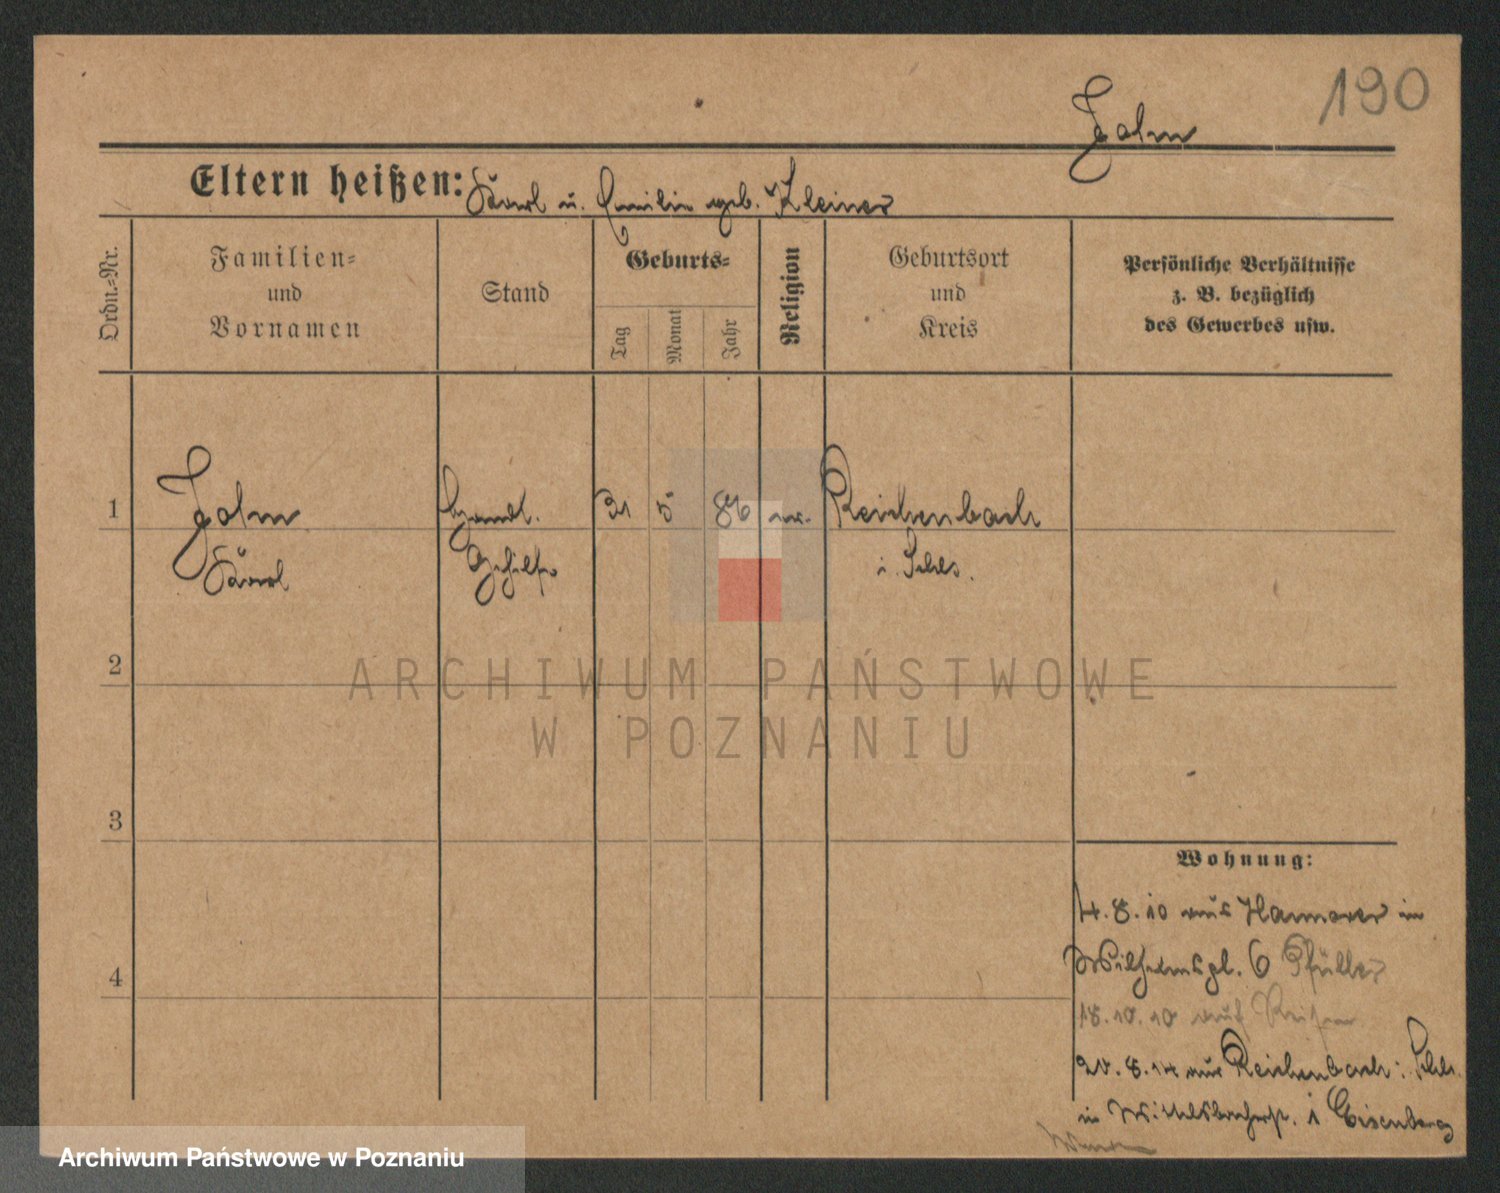 190
Jahn
Eltern heißen: Karl u. Emilie geb. Kleiner
Ordn.-Nr.
Familien-
und
Vornamen
Stand
Geburts-
Tag
Monat
Jahr
Religion
Geburtsort
und
Kreis
Persönliche Verhältnisse
z. B. bezüglich
des Gewerbes usw.
1
Jahn
Karl
Handl.
Gehilfe
31
5
86
ev.
Reichenbach
i. Schles.
2
3
4
ARCHIWUM PAŃSTWOWE
W POZNANIU
Wohnung:
4.8.10 aus Hannover in
Wilhelmspl. 6
18.10.10 auf Reisen
20.8.14 aus Reichenbach i. Schls.
in Wittelsbacherstr. 1 Eisenberg
Archiwum Państwowe w Poznaniu